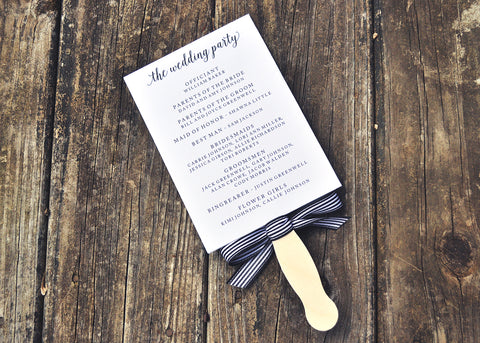 the wedding party
OFFICIANT
WILLIAM BAKER
PARENTS OF THE BRIDE
DAVID AND AMY JOHNSON
PARENTS OF THE GROOM
BILL AND JOYCE GREENWELL
MAID OF HONOR - SHAWNA LITTLE
BEST MAN - SAM JACKSON
BRIDESMAIDS
CARRIE JOHNSON, LORI ANN MILLER,
JORDAN ELLIS, ALLIE RICHARDSON
TORI ROBERTS
GROOMSMEN
JACK GREENWELL, GABY JOHNSON,
ALAN CROWE, JACOB WALDEN
CODY MORRIS
RINGBEARER - JUSTIN GREENWELL
FLOWER GIRLS
KIMI JOHNSON, CALLIE JOHNSON